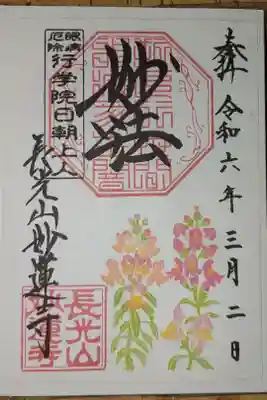 奉拝 令和六年三月二日
妙法
眼病
厄除
行学院日朝上人
長光山妙蓮寺
長光山
妙蓮寺